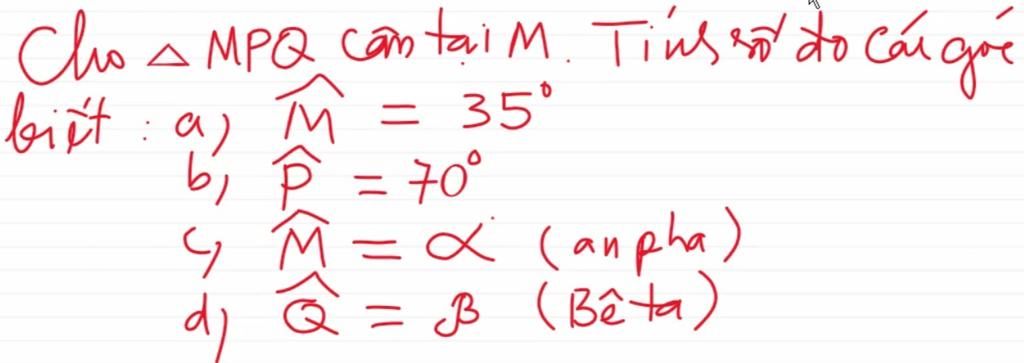 Cho △ MPQ cân tại M. Tính số đo các góc
biết : a) M̂ = 35°
b) P̂ = 70°
c) M̂ = α (an pha)
d) Q̂ = β (Bê ta)